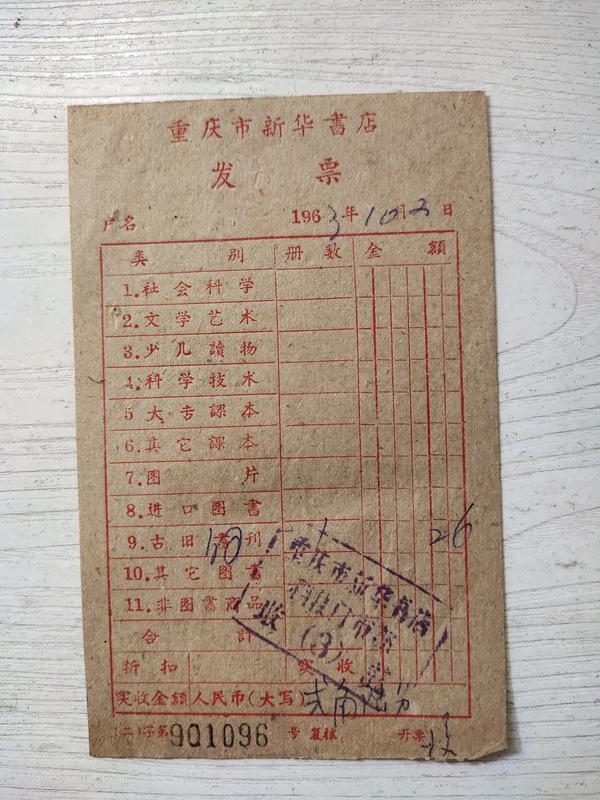 重庆市新华書店
发 票
户名 1963年10月2日
类 别 册 数 金 額
1.社会科学
2.文学艺术
3.少儿讀物
4.科学技术
5 大专課本
6.其它課本
7.图 片
8.进口图書
9.古旧書刊 26
10.其它图書
11.非图書商品
合 計
折 扣 实 收
实收金額人民币(大写)弍角陆分
(二)字第901096号 复核 开票
重庆市新华書店
科技门市部
(3)
收